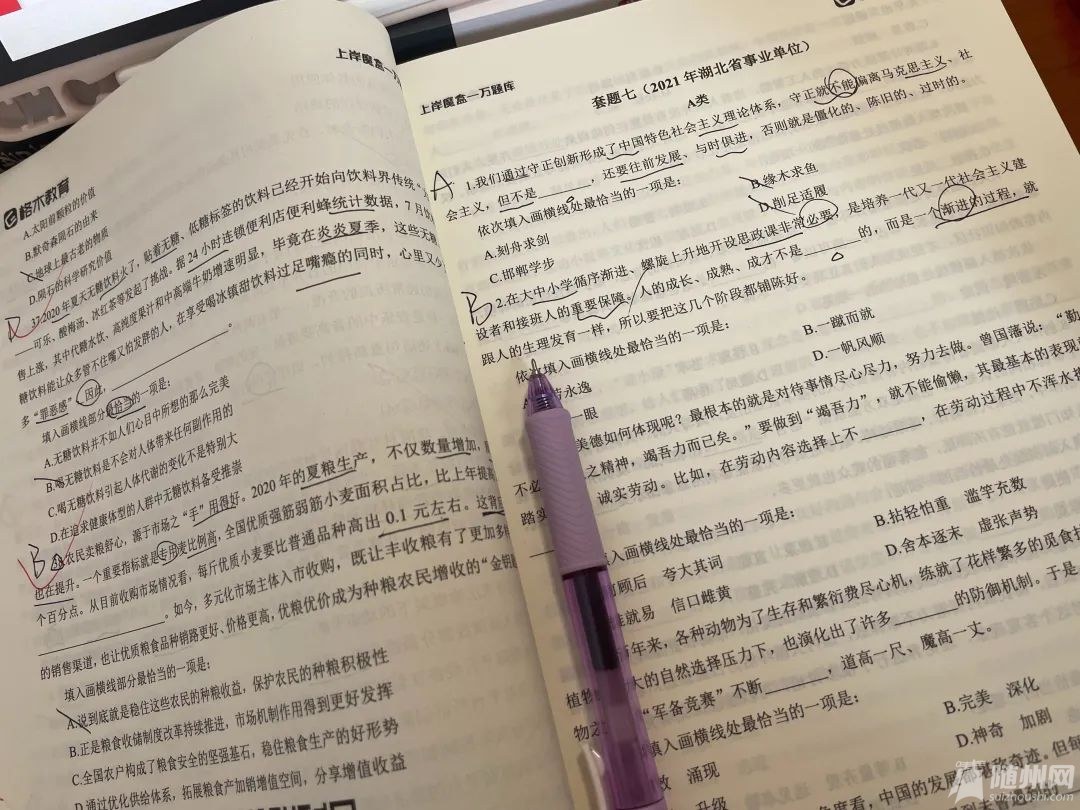 格木教育
上岸魔盒—万
A.太阳前颗粒的价值
B.默奇森陨石的由来
C.地球上最古老的物质
D.陨石的科学研究价值
D
37.2020年夏天无糖饮料火了,贴着无糖、低糖标签的饮料已经开始向饮料界传统
可乐、酸梅汤、冰红茶等发起了挑战。据24小时连锁便利店便利蜂统计数据,7月
售上涨,其中代糖水饮、高纯度果汁和中高端牛奶增速明显,毕竟在炎炎夏季,这些无糖
糖饮料能让众多管不住嘴又怕发胖的人,在享受喝冰镇甜饮料过足嘴瘾的同时,心里又少
多“罪恶感”,因此,________。
填入画横线部分最恰当的一项是:
A.无糖饮料并不如人们心目中所想的那么完美
B.喝无糖饮料是不会对人体带来任何副作用的
C.喝无糖饮料引起人体代谢的变化不是特别大
D.在追求健康体型的人群中无糖饮料备受推崇
B
农民卖粮舒心,源于市场之“手”用得好。2020年的夏粮生产,不仅数量增加,
也在提升。一个重要指标就是专用麦比例高,全国优质强筋弱筋小麦面积占比,比上年提高
个百分点。从目前收购市场情况看,每斤优质小麦要比普通品种高出0.1元左右。这
________。如今,多元化市场主体入市收购,既让丰收粮有了更加多
的销售渠道,也让优质粮食品种销路更好、价格更高,优粮优价成为种粮农民增收的“金钥
填入画横线部分最恰当的一项是:
A.说到底就是稳住这些农民的种粮收益,保护农民的种粮积极性
B.正是粮食收储制度改革持续推进,市场机制作用得到更好发挥
C.全国农户构成了粮食安全的坚强基石,稳住粮食生产的好形势
D.通过优化供给体系,拓展粮食产加销增值空间,分享增值收益
上岸魔盒—万题库
套题七(2021年湖北省事业单位)
A类
A
1.我们通过守正创新形成了中国特色社会主义理论体系,守正就不能偏离马克思主义、社
会主义,但不是________,还要往前发展、与时俱进,否则就是僵化的、陈旧的、过时的。
依次填入画横线处最恰当的一项是:
A.刻舟求剑 B.缘木求鱼
C.邯郸学步 D.削足适履
B
2.在大中小学循序渐进、螺旋上升地开设思政课非常必要,是培养一代又一代社会主义建
设者和接班人的重要保障。人的成长、成熟、成才不是________的,而是一个渐进的过程,就
跟人的生理发育一样,所以要把这几个阶段都铺陈好。
依 填入画横线处最恰当的一项是:
劳永逸 B.一蹴而就
一眼 D.一帆风顺
美德如何体现呢?最根本的就是对待事情尽心尽力,努力去做。曾国藩说:“勤
之精神,竭吾力而已矣。”要做到“竭吾力”,就不能偷懒,其最基本的表现
不必 诚实劳动。比如,在劳动内容选择上不________,在劳动过程中不浑水摸
踏实
填入画横线处最恰当的一项是:
顾后 夸大其词 B.拈轻怕重 滥竽充数
就易 信口雌黄 D.舍本逐末 虚张声势
年来,各种动物为了生存和繁衍费尽心机,练就了花样繁多的觅食技
植物 大的自然选择压力下,也演化出了许多________的防御机制。于是
物之 “军备竞赛”不断________,道高一尺、魔高一丈。
填入画横线处最恰当的一项是:
涌现 B.完美 深化
升级 D.神奇 加剧
度看,中国的发展都堪称奇迹。但每
随州网
suizhoushi.com